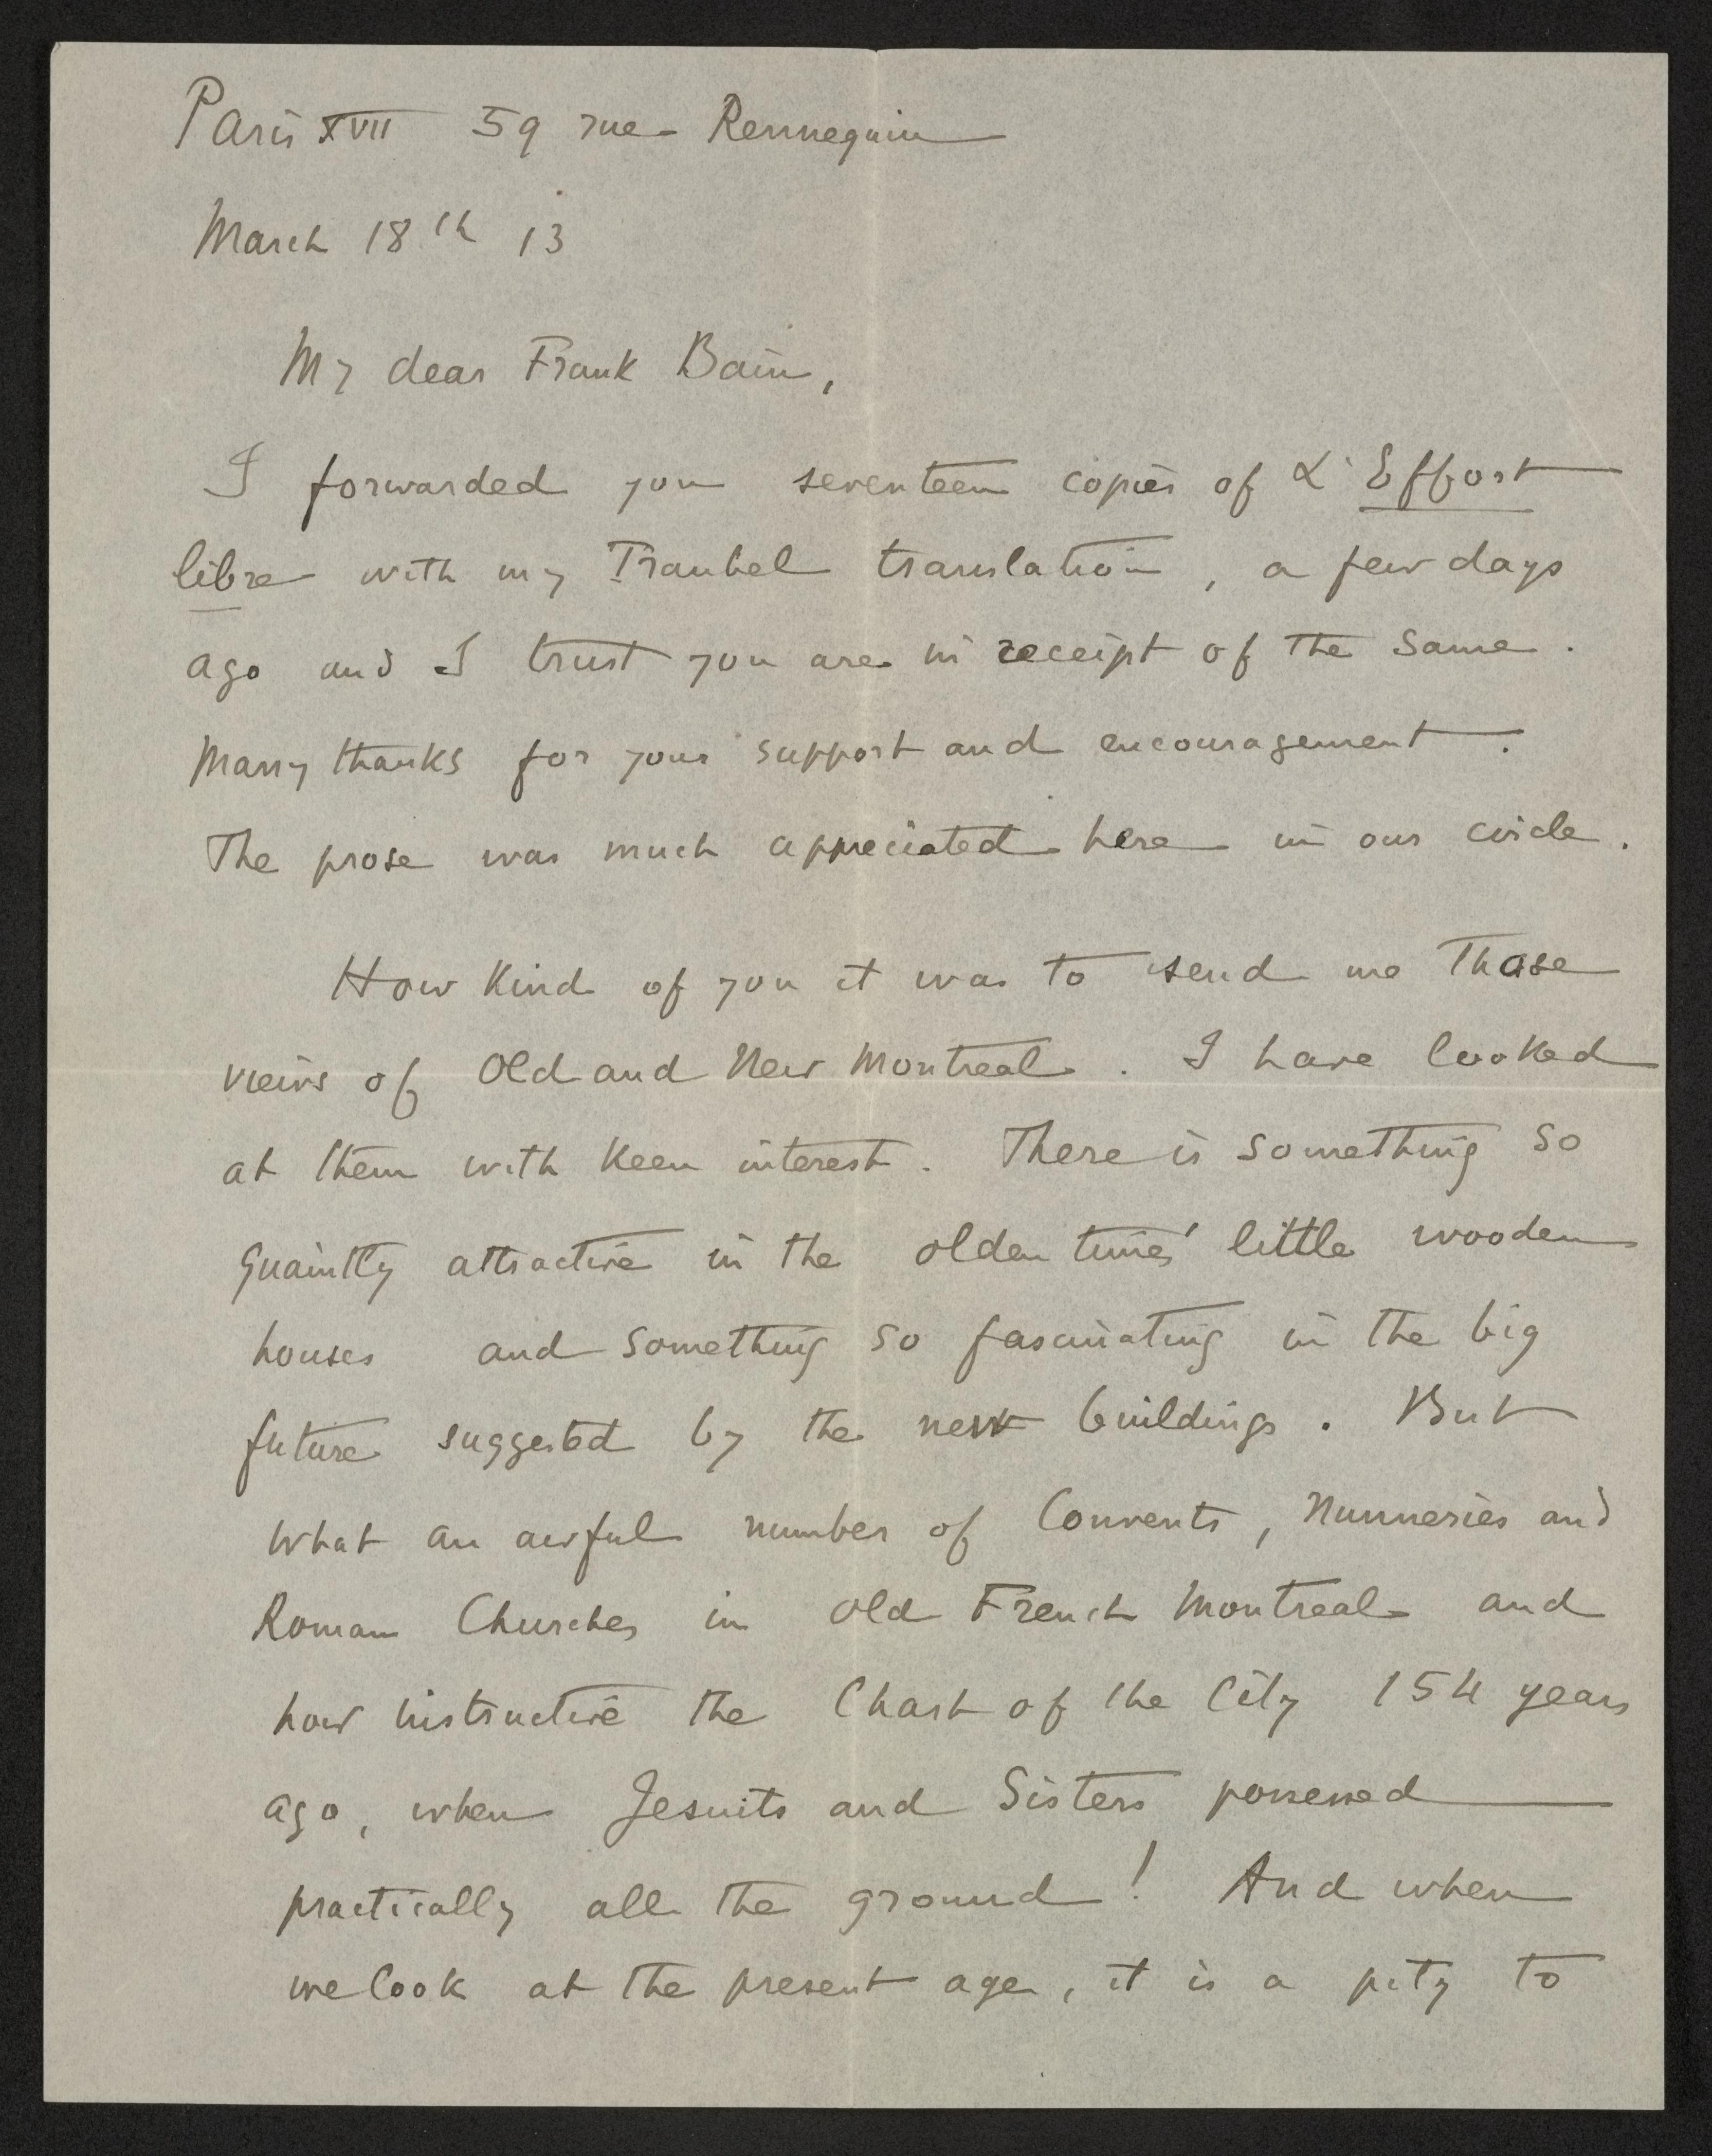 Paris XVII 59 rue Rennequin
March 18th 13
My dear Frank Bain,
I forwarded you seventeen copies of L'Effort
libre with my Traubel translation, a few days
ago and I trust you are in receipt of the same.
Many thanks for your support and encouragement.
The prose was much appreciated here in our circle.
How kind of you it was to send me those
views of Old and New Montreal. I have looked
at them with keen interest. There is something so
quaintly attractive in the olden times' little wooden
houses and something so fascinating in the big
future suggested by the new buildings. But
what an awful number of Convents, Nunneries and
Roman Churches in old French Montreal and
how instructive the Chart of the City 154 years
ago, when Jesuits and Sisters possessed
practically all the ground! And when
we look at the present age, it is a pity to